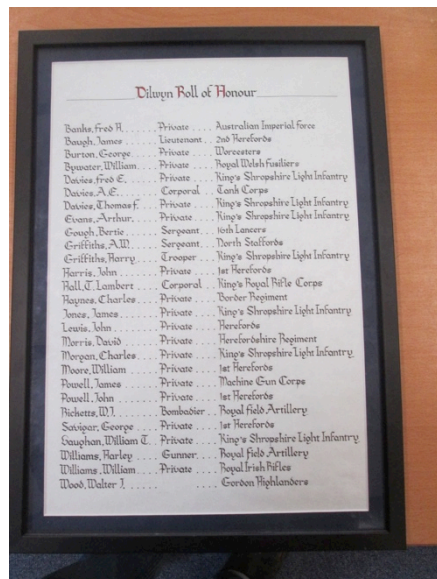 Dilwyn Roll of Honour
Banks, Fred A. ...... Private .... Australian Imperial Force
Baugh, James ...... Lieutenant .. 2nd Herefords
Burton, George .... Private .... Worcesters
Bywater, William .... Private .... Royal Welsh Fusiliers
Davies, Fred E. .... Private .... King's Shropshire Light Infantry
Davies, A.E. ...... Corporal .. Tank Corps
Davies, Thomas F. .. Private .... King's Shropshire Light Infantry
Evans, Arthur. .... Private .... King's Shropshire Light Infantry
Gough, Bertie ...... Sergeant .... 16th Lancers
Griffiths, A.W. ...... Sergeant.. North Staffords
Griffiths, Harry .... Trooper .... King's Shropshire Light Infantry
Harris, John ...... Private .... 1st Herefords
Hall, T. Lambert .... Corporal .. King's Royal Rifle Corps
Haynes, Charles .... Private .... Border Regiment
Jones, James ...... Private .... King's Shropshire Light Infantry
Lewis, John ...... Private .... Herefords
Morris, David .... Private .... Herefordshire Regiment
Morgan, Charles .... Private .... King's Shropshire Light Infantry
Moore, William .... Private .... 1st Herefords
Powell, James .... Private .... Machine Gun Corps
Powell, John .... Private .... 1st Herefords
Ricketts, W.J. .... Bombadier .. Royal Field Artillery
Savigar, George .... Private .... 1st Herefords
Vaughan, William T. .. Private .... King's Shropshire Light Infantry
Williams, Harley .... Gunner .... Royal Field Artillery
Williams, William .... Private .... Royal Irish Rifles
Wood, Walter J. ...... .... Gordon Highlanders